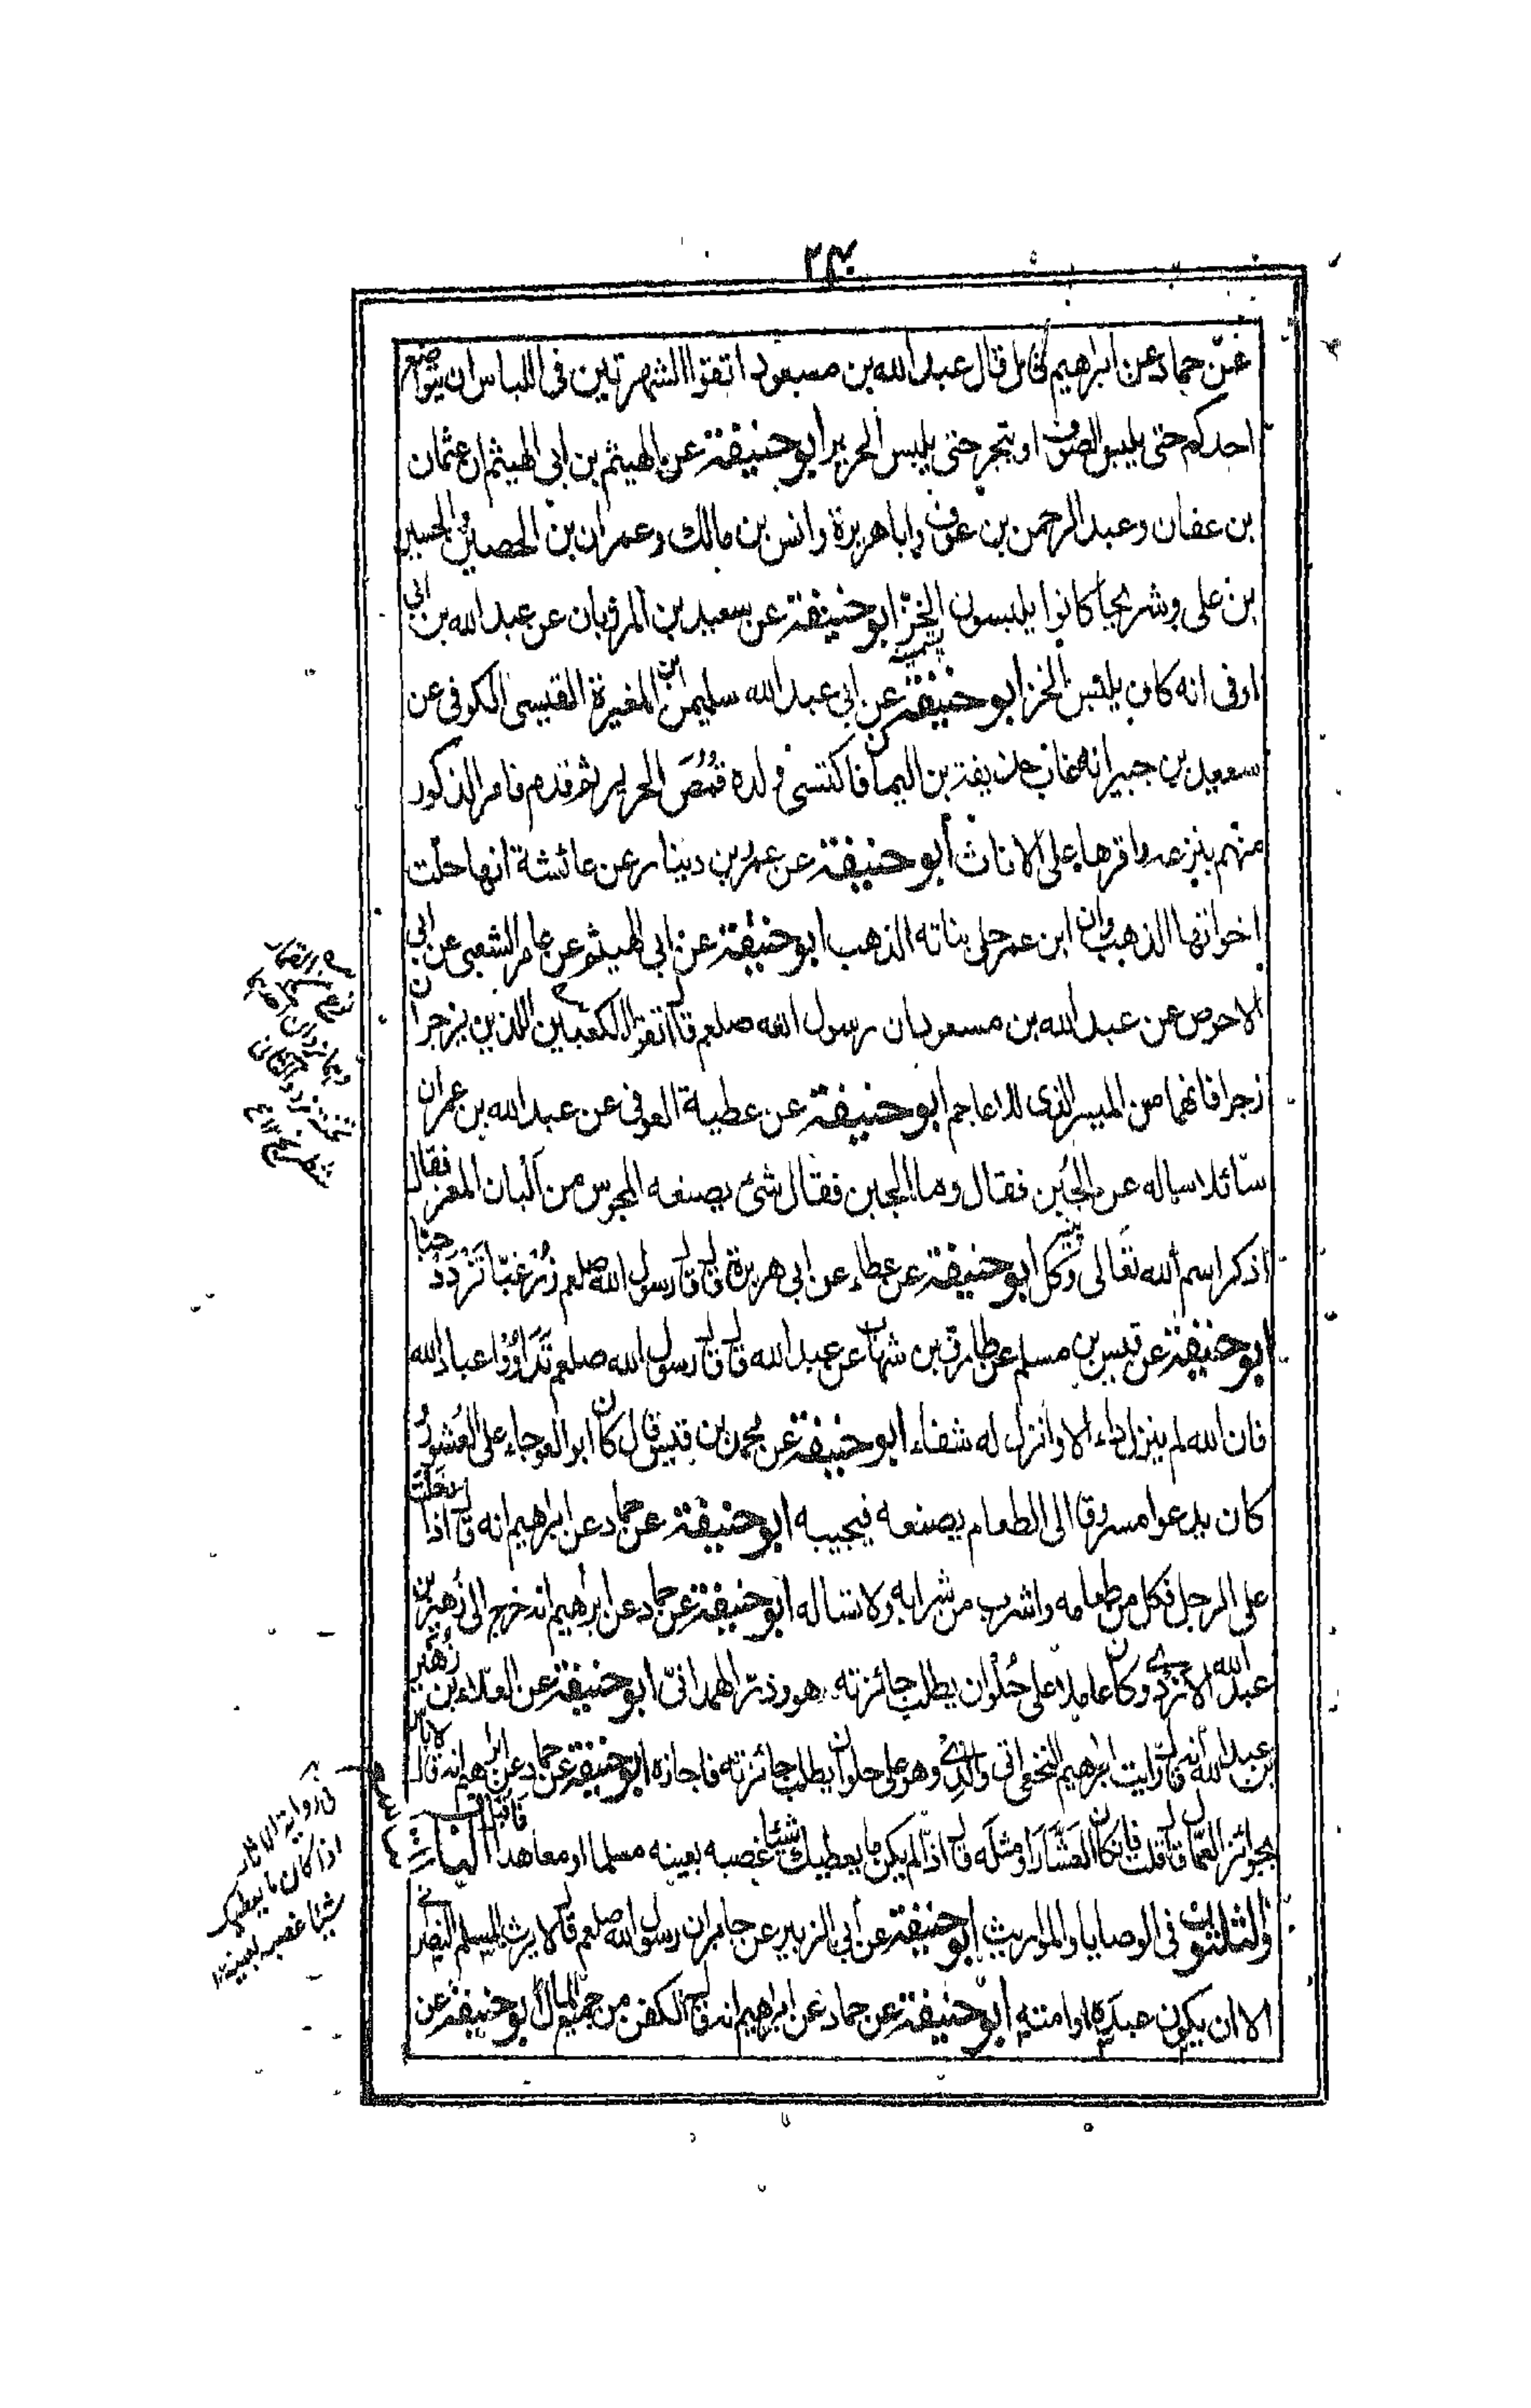 ٢٤٠
عن حماد عن ابراهيم قال قال عبد الله بن مسعود اتقوا الشهرتين فى اللباس ان يتواضع
احدكم حتى يلبس الصوف او يتبختر حتى يلبس الحرير ابو حنيفة عن الهيثم بن ابى الهيثم ان عثمان
بن عفان وعبد الرحمن بن عوف وابا هريرة وانس بن مالك وعمران بن الحصين والحسين
بن على وشريحا كانوا يلبسون الخز ابو حنيفة عن سعيد بن المرزبان عن عبد الله بن ابى
اوفى انه كان يلبس الخز ابو حنيفة عن ابى عبد الله سليمن بن المغيرة القيسى الكوفى عن
سعيد بن جبير انه غاب حذيفة بن اليمان فاكتسى ولده قُمُصَ الحرير ثم قدم فامر الذكور
منهم بنزعه واقرها على الاناث ابو حنيفة عن عمرو بن دينار عن عائشة انها حلّت
اخواتها الذهب وان ابن عمر حلى بناته الذهب ابو حنيفة عن ابى الهيثم عن عامر الشعبى عن ابى
الاحوص عن عبد الله بن مسعود ان رسول الله صلعم قال اتقوا الكعبين الذين يزجران
زجرا فانهما من الميسر الذى للاعاجم ابو حنيفة عن عطية العوفى عن عبد الله بن عمر ان
سائلا ساله عن الجُبن فقال وما الجبن فقال شئ يصنعه المجوس من البان المعز فقال
اذكر اسم الله تعالى وكل ابو حنيفة عن عطاء عن ابى هريرة قال قال رسول الله صلعم زُرْ غبّا تَزْدَدْ حبّا
ابو حنيفة عن قيس بن مسلم عن طارق بن شهاب عن عبد الله قال قال رسول الله صلعم تَدَاوَوْا عباد الله
فان الله لم ينزل داء الا وانزل له شفاء ابو حنيفة عن محمد بن قيس قال كان ابو العوجاء على العُشور
كان يدعوا مسروقا الى الطعام يصنعه فيجيبه ابو حنيفة عن حماد عن ابراهيم انه قال اذا دخلت
على الرجل فكل من طعامه واشرب من شرابه ولا تساله ابو حنيفة عن حماد عن ابراهيم انه خرج الى زُهير بن
عبد الله الازدى وكان عاملا على حُلْوان يطلب جائزته هو وذر الهمدانى ابو حنيفة عن العلاء بن زُهَير
بن عبد الله انه قال رايت ابراهيم النخعى اتى والدى وهو على حلوان يطلب جائزته فاجازه ابو حنيفة عن حماد عن ابراهيم انه قال لا باس
بجوائز العمال قال قلت فان كان العَشَّارَ او مثله قال اذا لم يكن ما يعطيك شيئا غصبه بعينه مسلما او معاهدا فاقبل الباب
والثلثون فى الوصايا والمواريث ابو حنيفة عن ابى الزبير عن جابر ان رسول الله صلعم قال لا يرث المسلم النصرانى
الا ان يكون عبده او امته ابو حنيفة عن حماد عن ابراهيم انه قال الكفن من جميع المال ابو حنيفة عن
فى رواية الاثار
اذا كان ما يعطيك
شيئا غصبه بعينه ١٢